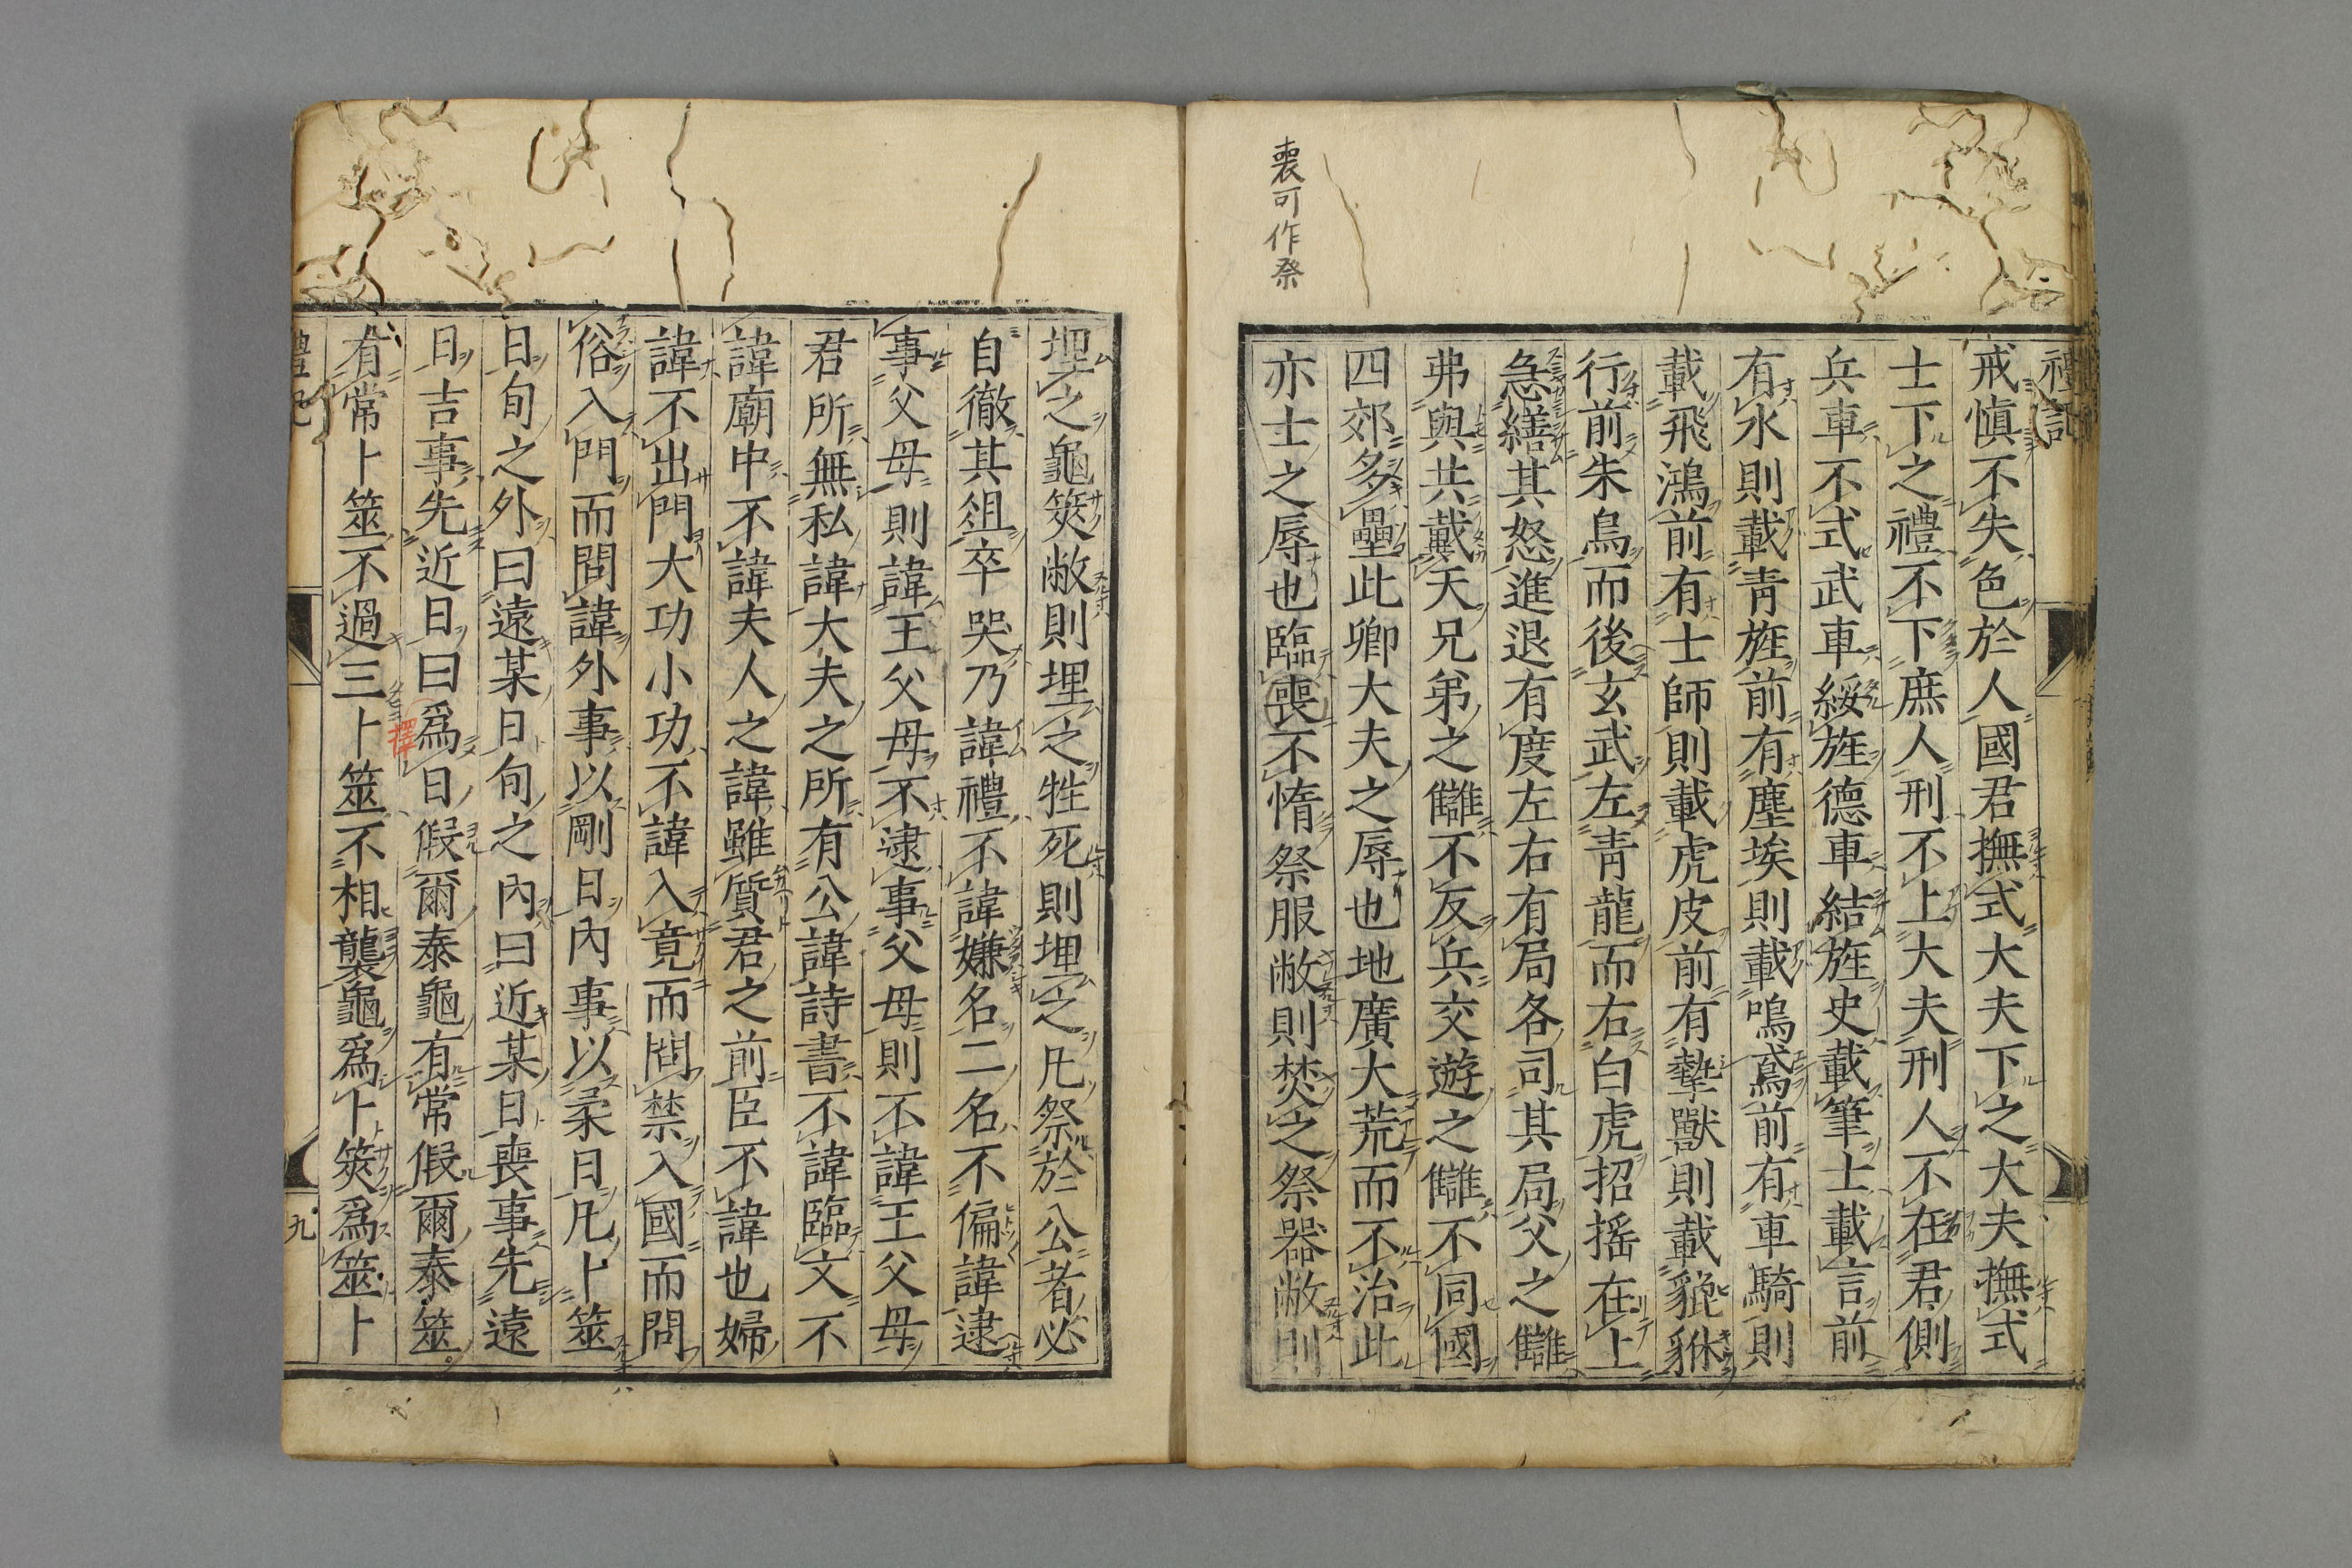 喪可作祭
禮記
戒愼不失色於人國君撫式大夫下之大夫撫式
士下之禮不下庶人刑不上大夫刑人不在君側
兵車不式武車綏旌德車結旌史載筆士載言前
有水則載靑旌前有塵埃則載鳴鳶前有車騎則
載飛鴻前有士師則載虎皮前有摯獸則載貔貅
行前朱鳥而後玄武左靑龍而右白虎招搖在上
急繕其怒進退有度左右有局各司其局父之讎
弗與共戴天兄弟之讎不反兵交遊之讎不同國
四郊多壘此卿大夫之辱也地廣大荒而不治此
亦士之辱也臨喪不惰祭服敝則焚之祭器敝則
埋之龜筴敝則埋之牲死則埋之凡祭於公者必
自徹其俎卒哭乃諱禮不諱嫌名二名不偏諱逮
事父母則諱王父母不逮事父母則不諱王父母
君所無私諱大夫之所有公諱詩書不諱臨文不
諱廟中不諱夫人之諱雖質君之前臣不諱也婦
諱不出門大功小功不諱入竟而問禁入國而問
俗入門而問諱外事以剛日內事以柔日凡卜筮
日旬之外曰遠某日旬之內曰近某日喪事先遠
日吉事先近日曰爲日假爾泰龜有常假爾泰筮
擇
有常卜筮不過三卜筮不相襲龜爲卜筴爲筮卜
禮記
九